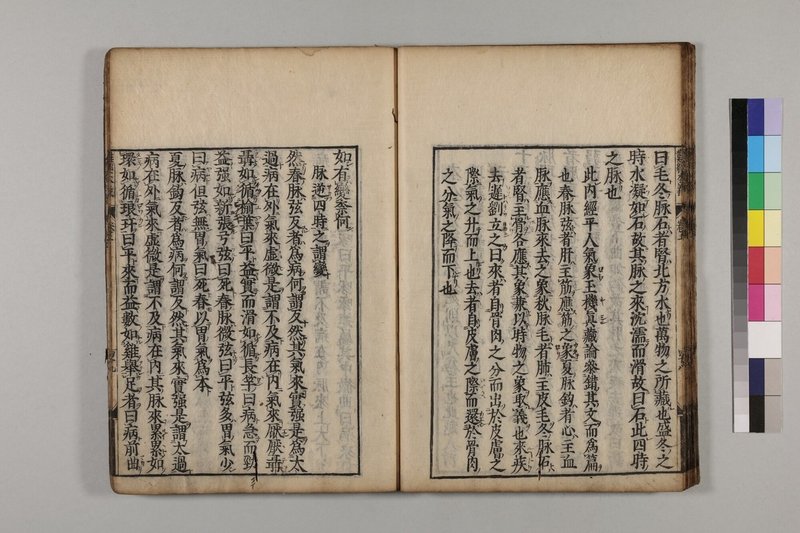 曰毛冬脉石者腎北方水也萬物之所藏也盛冬之
時水凝如石故其脉之來沈濡而滑故曰石此四時
之脉也
此内經平人氣象玉機眞藏論參錯其文而爲篇
也春脉弦者肝主筋應筋之象夏脉鈎者心主血
脉應血脉來去之象秋脉毛者肺主皮毛冬脉石
者腎主骨各應其象兼以時物之象取義也來疾
去遲劉立之曰來者自骨肉之分而出於皮膚之
際氣之升而上也去者自皮膚之際而還於骨肉
之分氣之降而下也
如有變奈何
脉逆四時之謂變
然春脉弦反者爲病何謂反然其氣來實强是爲太
過病在外氣來虛微是謂不及病在内氣來厭厭聶
聶如循榆葉曰平益實而滑如循長竿曰病急而勁
益强如新張弓弦曰死春脉微弦曰平弦多胃氣少
曰病但弦無胃氣曰死春以胃氣爲本
夏脉鈎反者爲病何謂反然其氣來實强是謂太過
病在外氣來虛微是謂不及病在内其脉來累累如
環如循琅玕曰平來而益數如雞擧足者曰病前曲